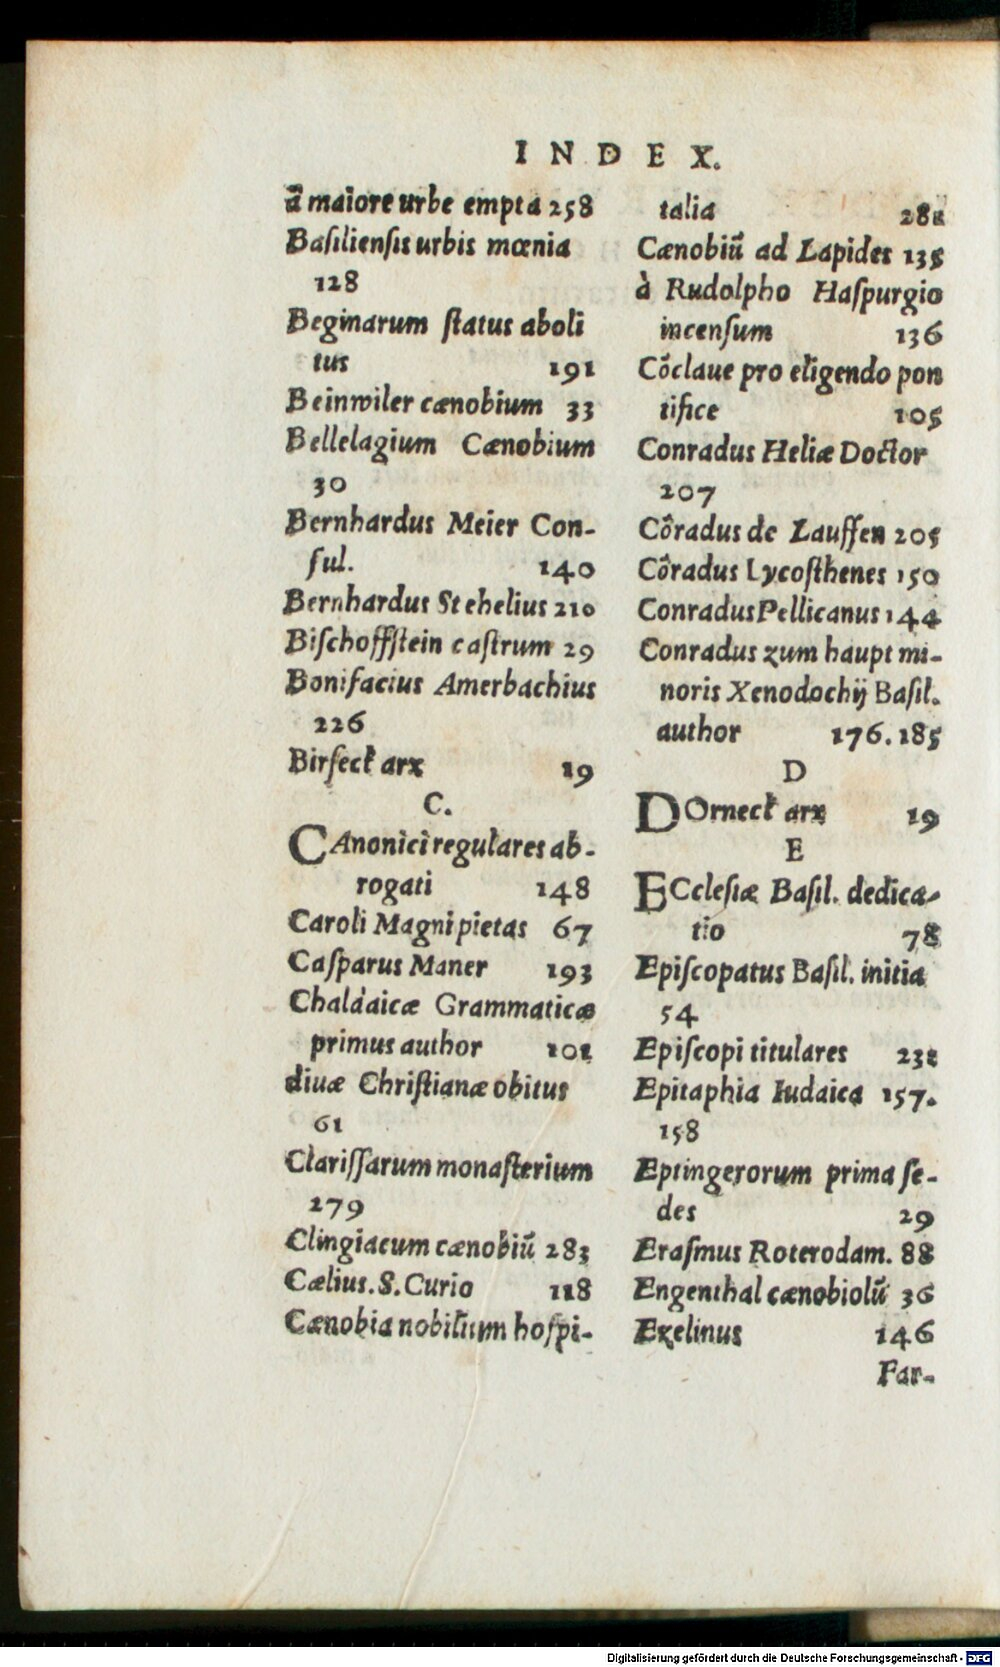 INDEX.
à maiore urbe empta 258
Basiliensis urbis mœnia
128
Beginarum ſtatus aboli
tus 191
Beinwiler cænobium 33
Bellelagium Cænobium
30
Bernhardus Meier Con-
ſul. 140
Bernhardus Stehelius 210
Biſchoffſtein caſtrum 29
Bonifacius Amerbachius
226
Birſeck arx 19
C.
CAnonici regulares ab-
rogati 148
Caroli Magni pietas 67
Caſparus Maner 193
Chaldaicæ Grammaticæ
primus author 101
diuæ Chriſtianæ obitus
61
Clariſſarum monaſterium
279
Clingiacum cænobiũ 283
Cælius.S.Curio 118
Cænobia nobilium hoſpi-
talia 281
Cænobiũ ad Lapides 135
à Rudolpho Haſpurgio
incenſum 136
Cõclaue pro eligendo pon
tifice 105
Conradus Heliæ Doctor
207
Cõradus de Lauffen 205
Cõradus Lycoſthenes 150
Conradus Pellicanus 144
Conradus zum haupt mi-
noris Xenodochij Baſil.
author 176. 185
D
DOrneck arx 19
E
ECcleſiæ Baſil. dedica-
tio 78
Epiſcopatus Baſil. initia
54
Epiſcopi titulares 231
Epitaphia Iudaica 157.
158
Eptingerorum prima ſe-
des 29
Eraſmus Roterodam. 88
Engenthal cænobiolũ 36
Ezelinus 146
Far-
Digitalisierung gefördert durch die Deutsche Forschungsgemeinschaft - DFG